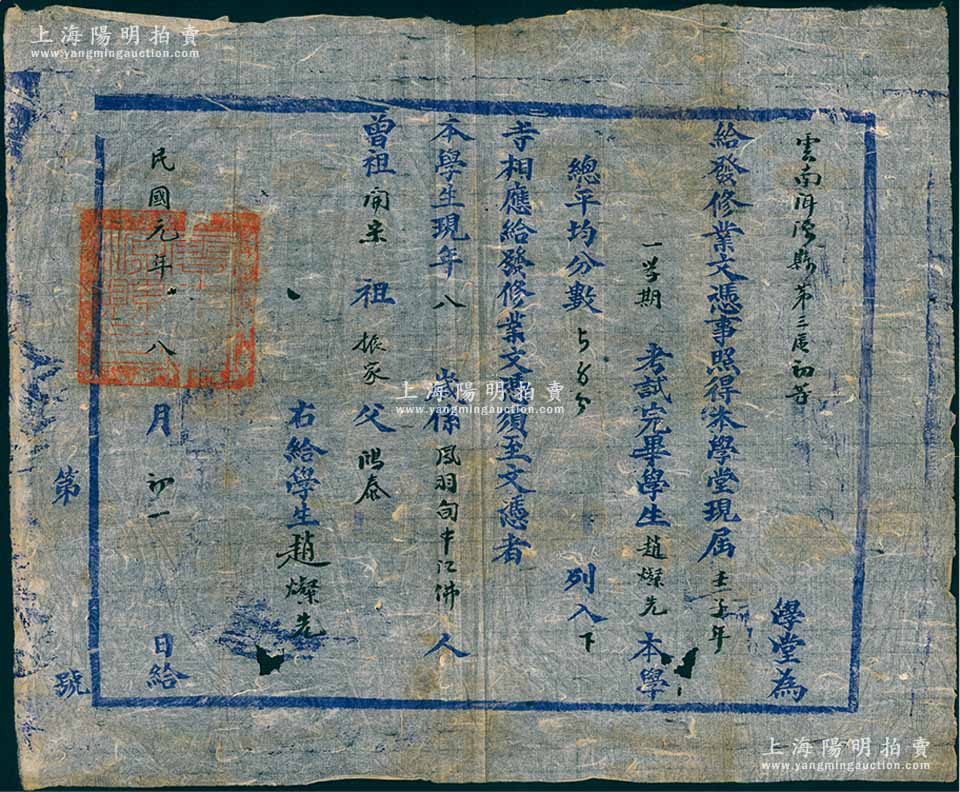 上海陽明拍賣
www.yangmingauction.com
雲南洱源縣第三區初等學堂為
給發修業文憑事照得本學堂現届壬子年
一学期考試完畢學生趙燦先本學
總平均分數分列入下
等相應給發修業文憑須至文憑者
本學生現年八歲係鳳羽旬中江佛人
曾祖開宗祖振家父鴻泰
右給學生趙燦先
民國元年八月初一日給
第號
上海陽明拍賣
www.yangmingauction.com
上海陽明拍賣
www.yangmingauction.com